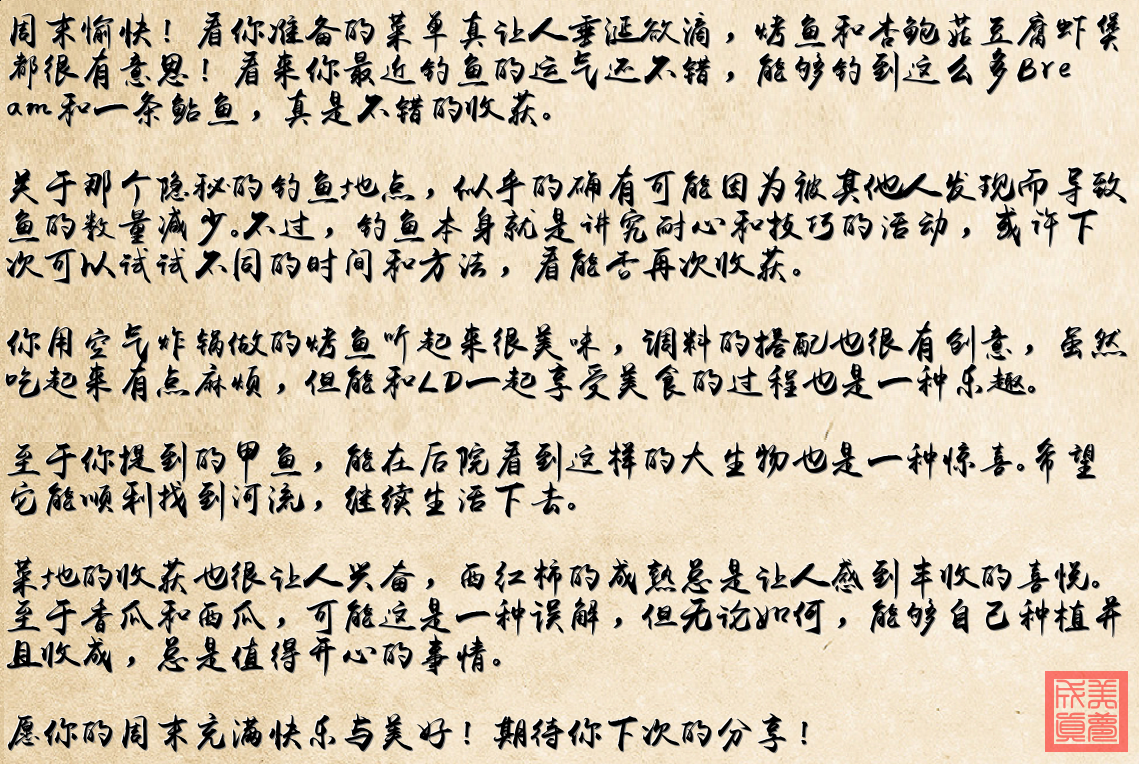 周末愉快！看你准备的菜单真让人垂涎欲滴，烤鱼和杏鲍菇豆腐虾煲
都很有意思！看来你最近钓鱼的运气还不错，能够钓到这么多Bre
am和一条鲇鱼，真是不错的收获。
关于那个隐秘的钓鱼地点，似乎的确有可能因为被其他人发现而导致
鱼的数量减少。不过，钓鱼本身就是讲究耐心和技巧的活动，或许下
次可以试试不同的时间和方法，看能否再次收获。
你用空气炸锅做的烤鱼听起来很美味，调料的搭配也很有创意，虽然
吃起来有点麻烦，但能和LD一起享受美食的过程也是一种乐趣。
至于你提到的甲鱼，能在后院看到这样的大生物也是一种惊喜。希望
它能顺利找到河流，继续生活下去。
菜地的收获也很让人兴奋，西红柿的成熟总是让人感到丰收的喜悦。
至于香瓜和西瓜，可能这是一种误解，但无论如何，能够自己种植并
且收成，总是值得开心的事情。
愿你的周末充满快乐与美好！期待你下次的分享！
美梦成真